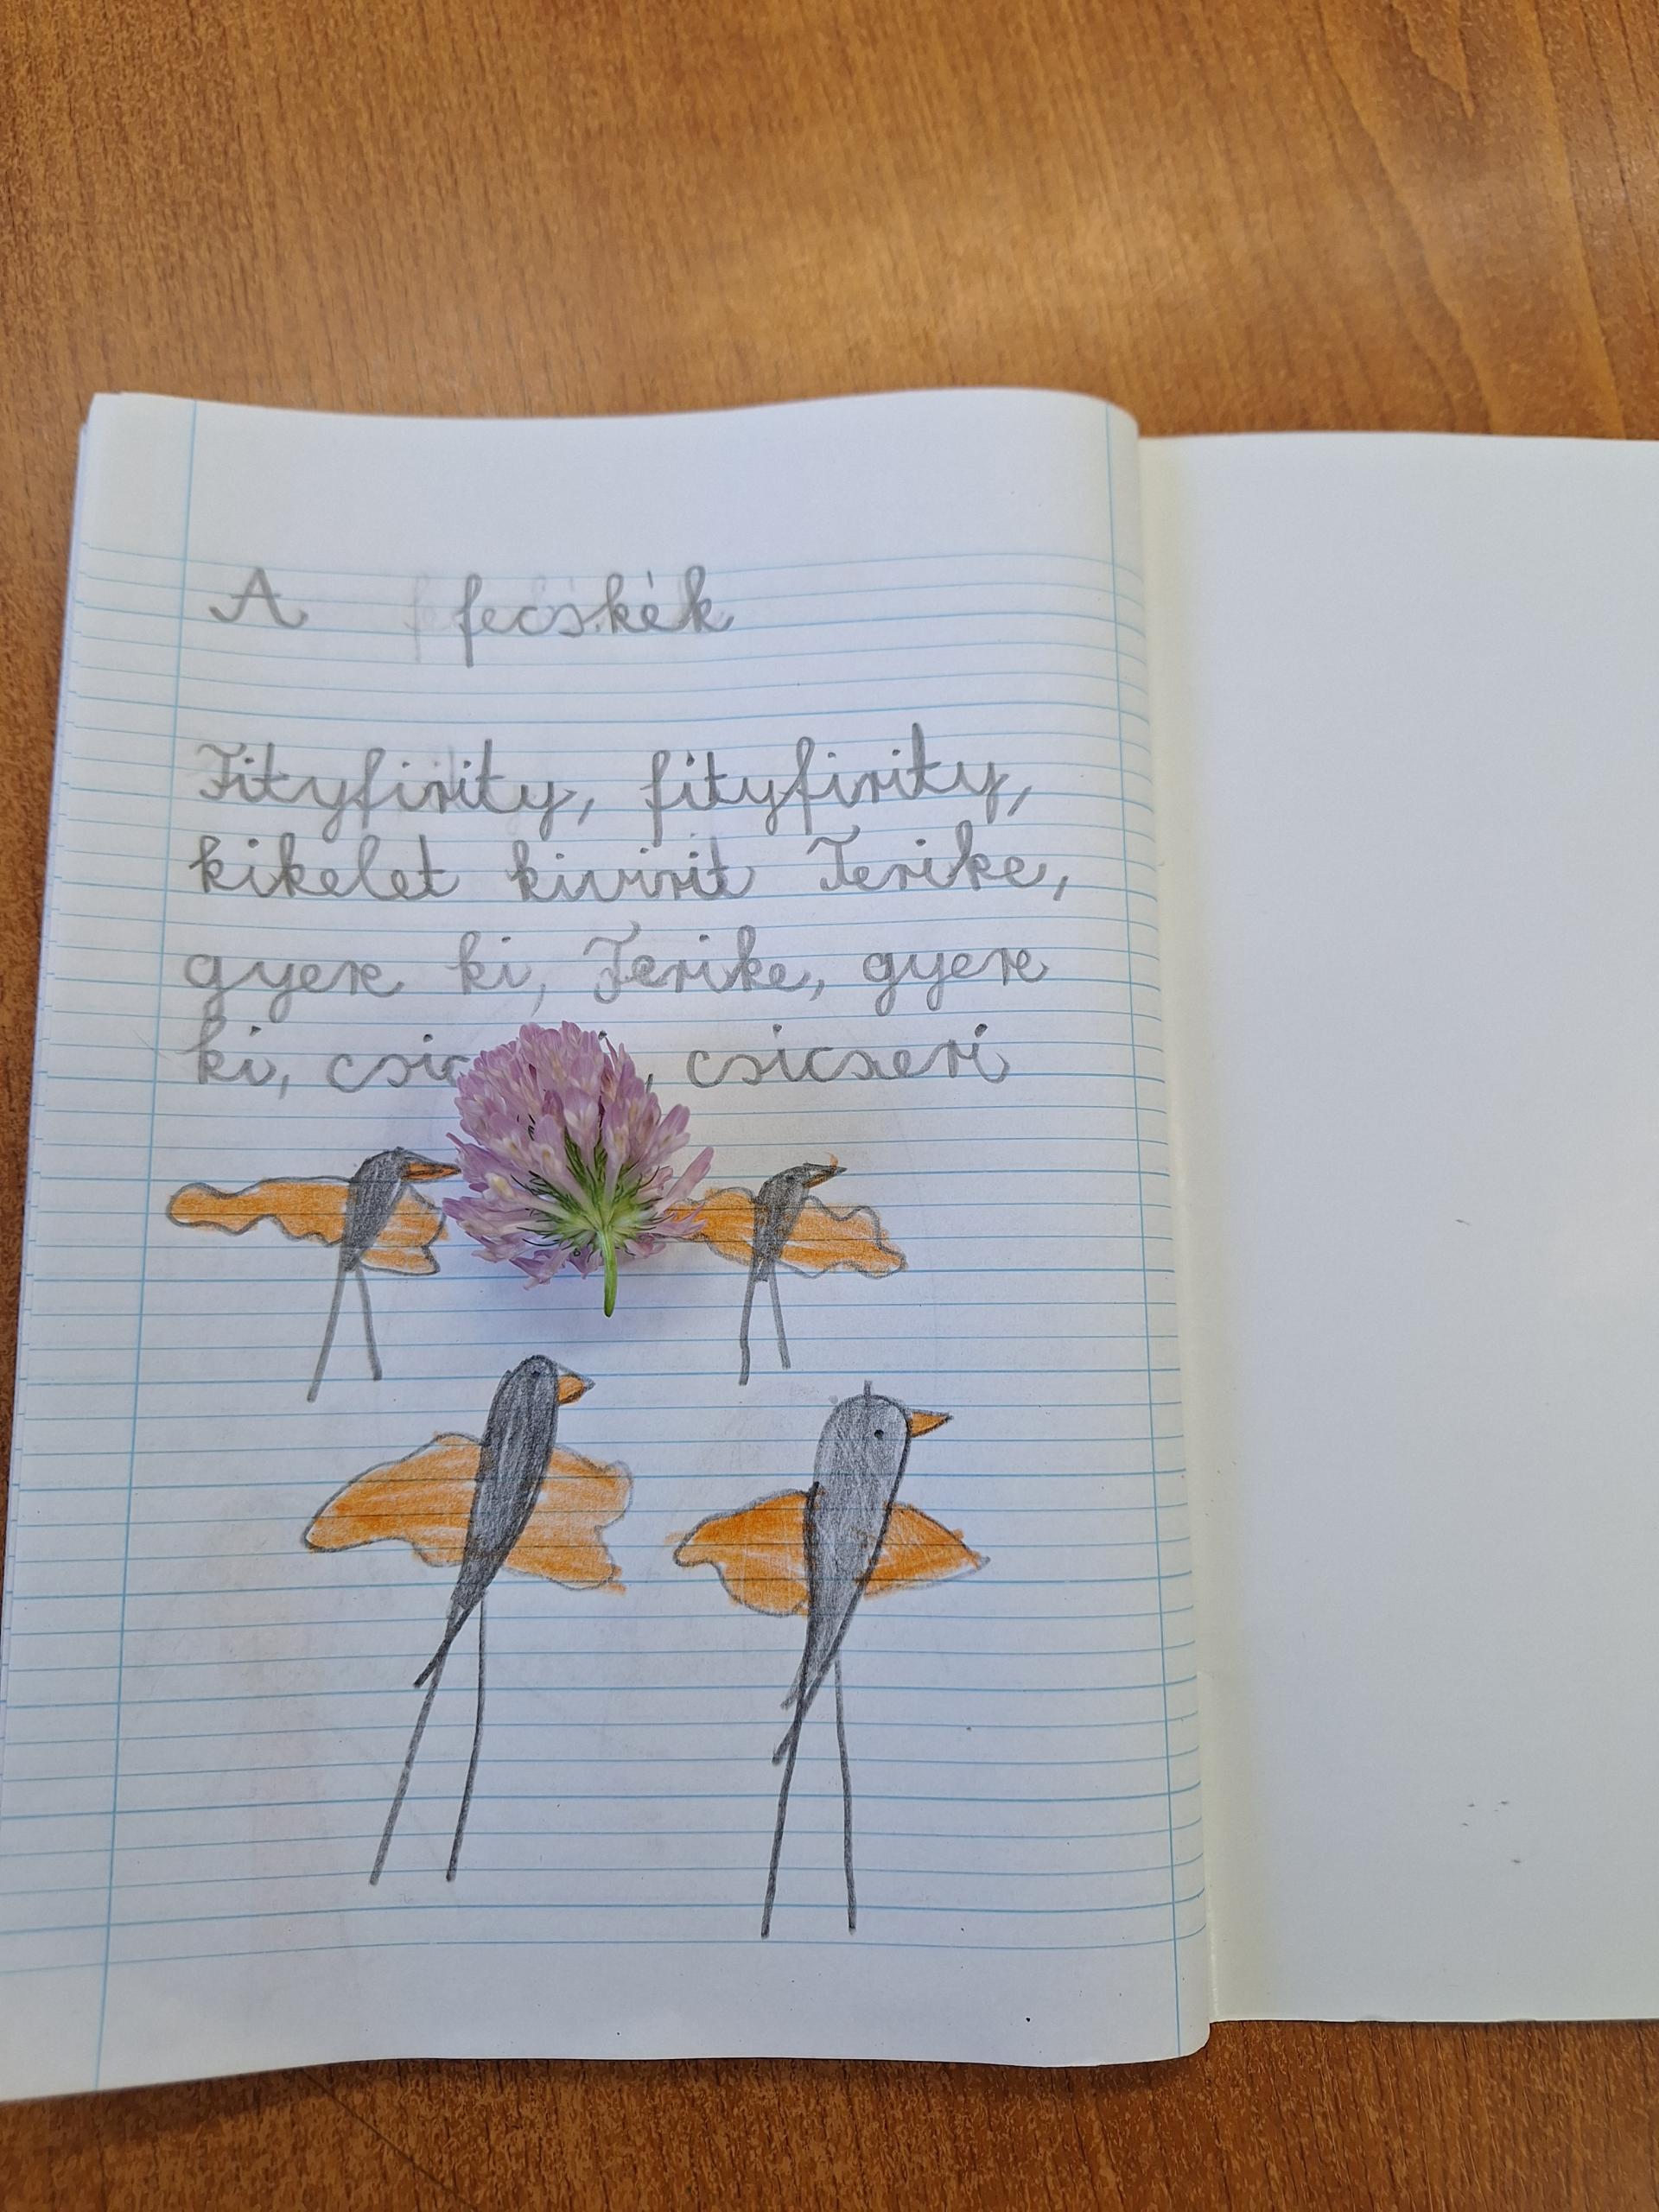 A fecskék
Fityfirity, fityfirity,
kikelet kivirit Terike,
gyere ki, Terike, gyere
ki, csicseri